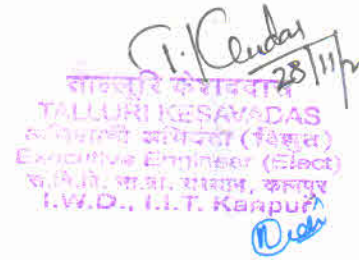 T. Kesavdas
28/11/2
ताल्लूरि केशवदास
TALLURI KESAVADAS
अधिशासी अभियंता (विद्युत)
Executive Engineer (Elect)
सं.नि.वि. भा.प्रौ. संस्थान, कानपुर
I.W.D., I.I.T. Kanpur